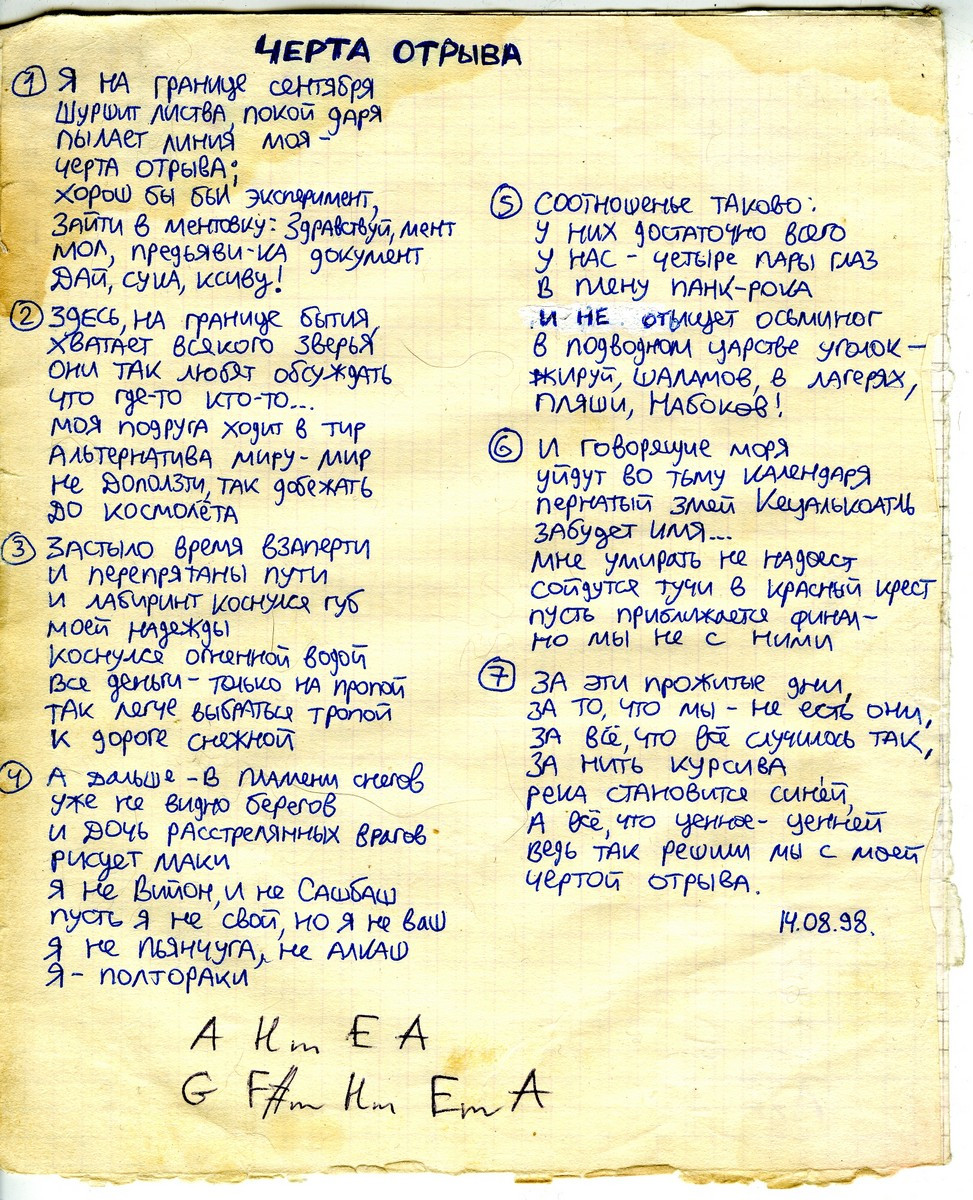 ЧЕРТА ОТРЫВА
1 Я НА ГРАНИЦЕ СЕНТЯБРЯ
ШУРШИТ ЛИСТВА, ПОКОЙ ДАРЯ
ПЫЛАЕТ ЛИНИЯ МОЯ –
ЧЕРТА ОТРЫВА;
ХОРОШ БЫ БЫЛ ЭКСПЕРИМЕНТ,
ЗАЙТИ В МЕНТОВКУ: ЗДРАВСТВУЙ, МЕНТ
МОЛ, ПРЕДЬЯВИ-КА ДОКУМЕНТ
ДАЙ, СУКА, КСИВУ!
2 ЗДЕСЬ, НА ГРАНИЦЕ БЫТИЯ,
ХВАТАЕТ ВСЯКОГО ЗВЕРЬЯ
ОНИ ТАК ЛЮБЯТ ОБСУЖДАТЬ
ЧТО ГДЕ-ТО КТО-ТО...
МОЯ ПОДРУГА ХОДИТ В ТИР
АЛЬТЕРНАТИВА МИРУ-МИР
НЕ ДОПОЛЗТИ, ТАК ДОБЕЖАТЬ
ДО КОСМОЛЁТА
3 ЗАСТЫЛО ВРЕМЯ ВЗАПЕРТИ
И ПЕРЕПРЯТАНЫ ПУТИ
И ЛАБИРИНТ КОСНУЛСЯ ГУБ
МОЕЙ НАДЕЖДЫ
КОСНУЛСЯ ОГНЕННОЙ ВОДОЙ
ВСЕ ДЕНЬГИ – ТОЛЬКО НА ПРОПОЙ
ТАК ЛЕГЧЕ ВЫБРАТЬСЯ ТРОПОЙ
К ДОРОГЕ СНЕЖНОЙ
4 А ДАЛЬШЕ – В ПЛАМЕНИ СНЕГОВ
УЖЕ НЕ ВИДНО БЕРЕГОВ
И ДОЧЬ РАССТРЕЛЯННЫХ ВРАГОВ
РИСУЕТ МАКИ
Я НЕ ВИЙОН, И НЕ САШБАШ
ПУСТЬ Я НЕ СВОЙ, НО Я НЕ ВАШ
Я НЕ ПЬЯНЧУГА, НЕ АЛКАШ
Я – ПОЛТОРАКИ
A Hm E A
G F#m Hm Em A
5 СООТНОШЕНЬЕ ТАКОВО:
У НИХ ДОСТАТОЧНО ВСЕГО
У НАС – ЧЕТЫРЕ ПАРЫ ГЛАЗ
В ПЛЕНУ ПАНК-РОКА
И НЕ ОТЫЩЕТ ОСЬМИНОГ
В ПОДВОДНОМ ЦАРСТВЕ УГОЛОК –
ЖИРУЙ, ШАЛАМОВ, В ЛАГЕРЯХ,
ПЛЯШИ, НАБОКОВ!
6 И ГОВОРЯЩИЕ МОРЯ
УЙДУТ ВО ТЬМУ КАЛЕНДАРЯ
ПЕРНАТЫЙ ЗМЕЙ КЕЦАЛЬКОАТЛЬ
ЗАБУДЕТ ИМЯ...
МНЕ УМИРАТЬ НЕ НАДОЕСТ
СОЙДУТСЯ ТУЧИ В КРАСНЫЙ КРЕСТ
ПУСТЬ ПРИБЛИЖАЕТСЯ ФИНАЛ –
НО МЫ НЕ С НИМИ
7 ЗА ЭТИ ПРОЖИТЫЕ ДНИ,
ЗА ТО, ЧТО МЫ – НЕ ЕСТЬ ОНИ,
ЗА ВСЁ, ЧТО ВСЁ СЛУЧИЛОСЬ ТАК,
ЗА НИТЬ КУРСИВА
РЕКА СТАНОВИТСЯ СИНЕЙ,
А ВСЁ, ЧТО ЦЕННОЕ – ЦЕННЕЙ
ВЕДЬ ТАК РЕШИЛИ МЫ С МОЕЙ
ЧЕРТОЙ ОТРЫВА.
14.08.98.